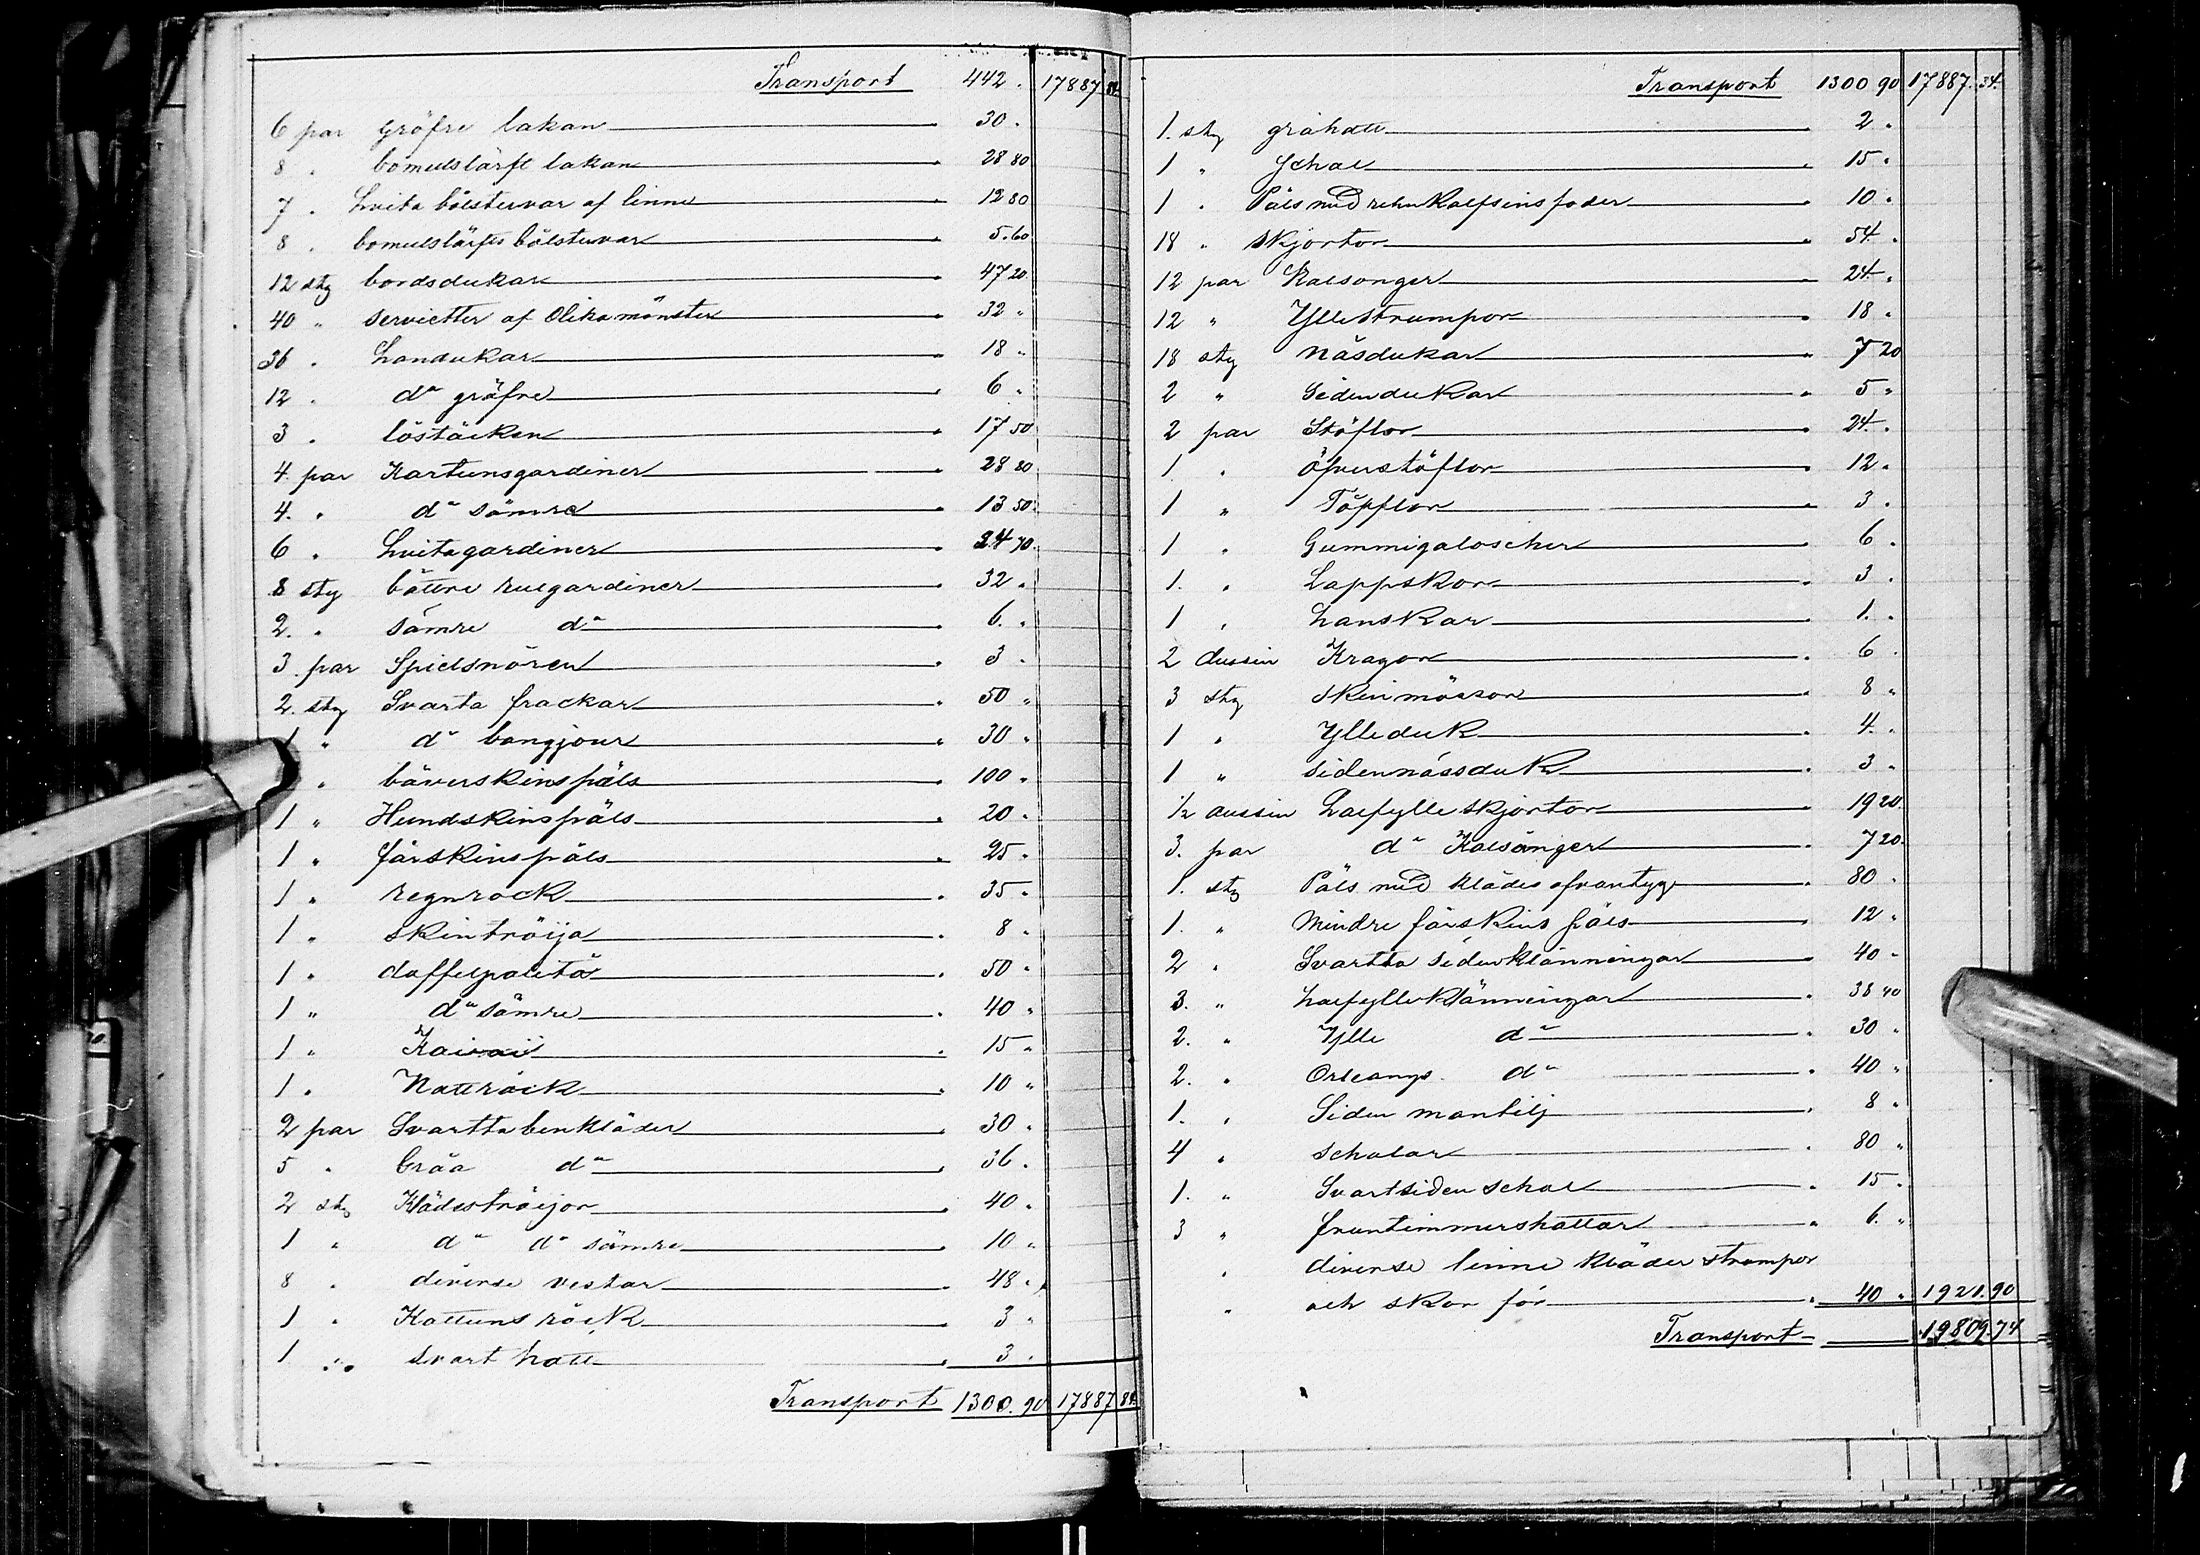 Transport 442. 17887 84.
6 par gröfre lakan 30.
8 " bomulslärft lakan 28 80
7 " hvita bolstervar af linne 12 80
8 " bomulslärfts bolstervar 5.60
12 sty bordsdukar 47 20
40 " servietter af Olika mönster 32 "
36 " handukar 18 "
12 " do gröfre 6 "
3 " löstäcken 17 50
4 par Kartunsgardiner 28 80
4. " do sämre 13 50
6 " hvita gardiner 24 70
8 sty bättre rulgardiner 32 "
2. " sämre do 6. "
3 par Spielsnören 3 "
2. sty Svarta frackar 50 "
1 " do bangjour 30 "
" bäverskinspäls 100 "
1 " Hundskinspäls 20 "
1 " fårskinspäls 25 "
1 " regnrock 35 "
1 " skintröija 8 "
1 " daffelpaletå 50 "
1 " do sämre 40 "
1 " Kavai 15 "
1 " Nattrock 10 "
2 par Svartta benkläder 30 "
5 " Gråa do 36 "
2 sty Klädeströijor 40 "
1 " do do sämre 10 "
8 " diverse vestar 48 "
1 " Kattuns råck 3 "
1 " svart hatt 3 "
Transport 1300.90 17887 84
Transport 1300 90 17887. 34.
1. sty gråhatt 2 "
1 " Schal 15 "
1 " Päls med rehnkalfsins foder 10 "
18 " skjortor 54 "
12 par Kalsonger 24 "
12 " Yllestrumpor 18 "
18 sty näsdukar 7 20
2 " Sidendukar 5 "
2 par Stöflor 24. "
1. " Öfverstöflor 12 "
1 " Töfflor 3 "
1 " Gummigaloscher 6 "
1. " Lappskor 3 "
1 " hanskar 1. "
2 dussin Kragor 6 "
3 sty Skinmössor 8 "
1 " Ylleduk 4. "
1 " sidennässduk 3 "
1/2 dussin halfylle skjortor 19 20
3. par do Kalsånger 7 20
1. sty Päls med klädes ofvantyg 80 "
1. " Mindre fårskins päls 12 "
2 " Svartta sidenklänningar 40 "
3. " halfylleklänningar 38 40
2. " Ylle do 30 "
2. " Orleangs do 40 "
1. " Siden mantilj 8 "
4 " Schalar 80 "
1. " Svartsiden schal 15 "
3 " fruntimmershattar 6. "
" diverse linne kläder strumpor
" och skor för 40 " 1921.90
Transport 19809.74